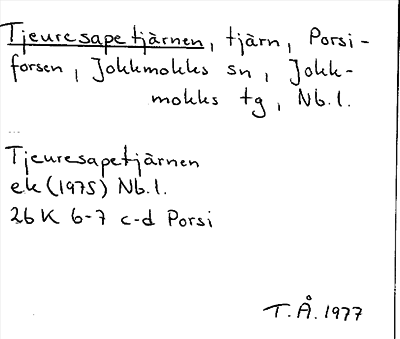 Tjeuresapetjärnen, tjärn, Porsi-
forsen, Jokkmokks sn, Jokk-
mokks tg, Nb.l.
Tjeuresapetjärnen
ek (1975) Nb.l.
26 K 6-7 c-d Porsi
T.Å. 1977